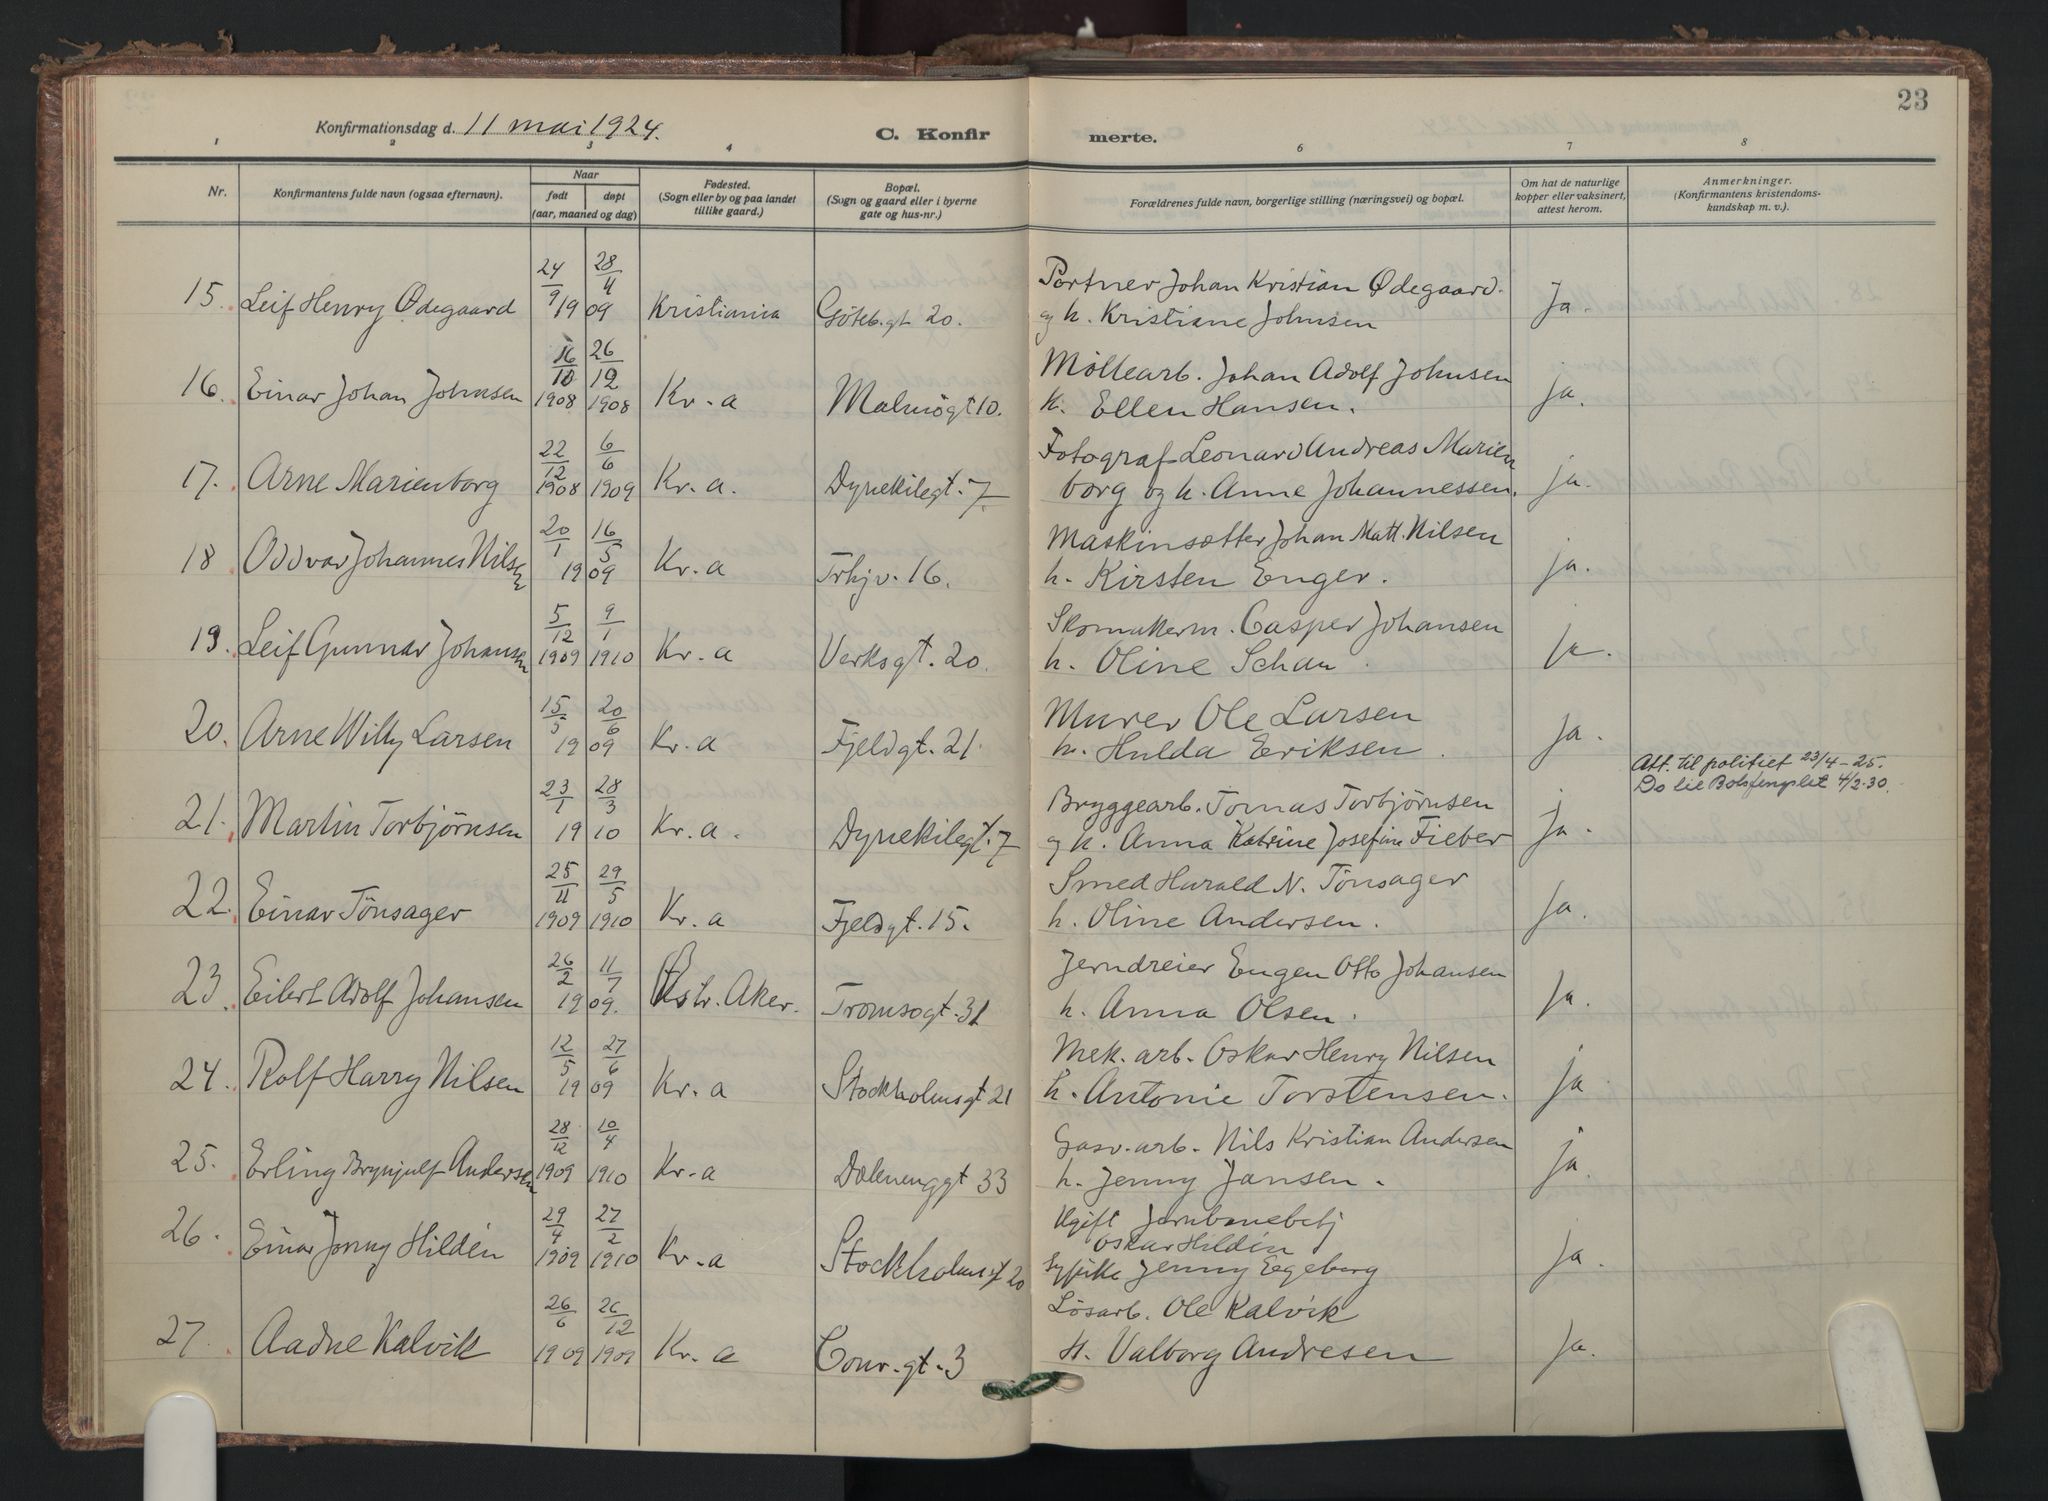 23
Konfirmationsdag d. 11 mai 1924.
C. Konfir merte.
1 2 3 4 6 7 8
Nr.
Konfirmantens fulde navn (ogsaa efternavn).
Naar
født døpt
(aar, maaned og dag)
Fødested.
(Sogn eller by og paa landet
tillike gaard.)
Bopæl.
(Sogn og gaard eller i byerne
gate og hus-nr.)
Forældrenes fulde navn, borgerlige stilling (næringsvei) og bopæl.
Om hat de naturlige
kopper eller vaksinert,
attest herom.
Anmerkninger.
(Konfirmantens kristendoms-
kundskap m. v.).
15. Leif Henry Ødegaard 24/9 28/4 1909 Kristiania Göteb.gt 20. Portner Johan Kristian Ødegaard.
og h. Kristiane Johnsen Ja.
16. Einar Johan Johnsen 16/10 1908 26/12 1908 Kr.a Malmögt 10. Møllearb. Johan Adolf Johnsen
h. Ellen Hansen. ja.
17. Arne Marienborg 22/12 1908 6/6 1909 Kr.a. Dynekilegt. 7 Fotograf Leonard Andreas Marien
borg og h. Anne Johannessen. ja.
18 Oddvar Johannes Nilsen 20/1 16/5 1909 Kr.a Trhjv. 16. Maskinsætter Johan Matt. Nilsen
h. Kirsten Enger. ja.
19. Leif Gunnar Johansen 5/12 1909 9/1 1910 Kr.a Verksgt. 20. Skomakerm. Casper Johansen
h. Oline Schau. ja.
20. Arne Willy Larsen 15/5 20/6 1909 Kr.a Fjeldgt. 21. Murer Ole Larsen
h. Hulda Eriksen. Ja.
Att. til politiet 23/4-25.
Do til Botsfengslet 4/2-30.
21. Martin Torbjørnsen 23/1 28/3 1910 Kr.a. Dynekilegt. 7 Bryggearb. Tomas Torbjørnsen
og h. Anna Katrine Josefine Fieber ja.
22. Einar Tönsager 25/11 1909 29/5 1910 Kr.a Fjeldgt. 15. Smed Harald N. Tönsager
h. Oline Andersen. Ja.
23. Eilert Adolf Johansen 26/2 11/7 1909. Østr. Aker. Tromsogt. 31 Jerndreier Eugen Otto Johansen
h. Anna Olsen. Ja.
24. Rolf Harry Nilsen 12/5 27/6 1909 Kr.a Stockholmsgt 21 Mek. arb. Oskar Henry Nilsen
h. Antonie Torstensen. ja
25. Erling Brynjulf Andersen 28/12 1909 10/4 1910 Kr.a Dælenenggt 33 Gasv. arb. Nils Kristian Andersen
h. Jenny Jansen. ja.
26. Einar Jonny Hildén 29/4 1909 27/2 1910 Kr.a Stockholmsgt 20 Ugift Jernbanebetj
Oskar Hildén
Sypike Jenny Egeberg Ja.
27. Aadne Kalvik 26/6 1909 26/12 1909 Kr.a Conr.gt. 3 Løsarb. Ole Kalvik
H. Valborg Andresen Ja.